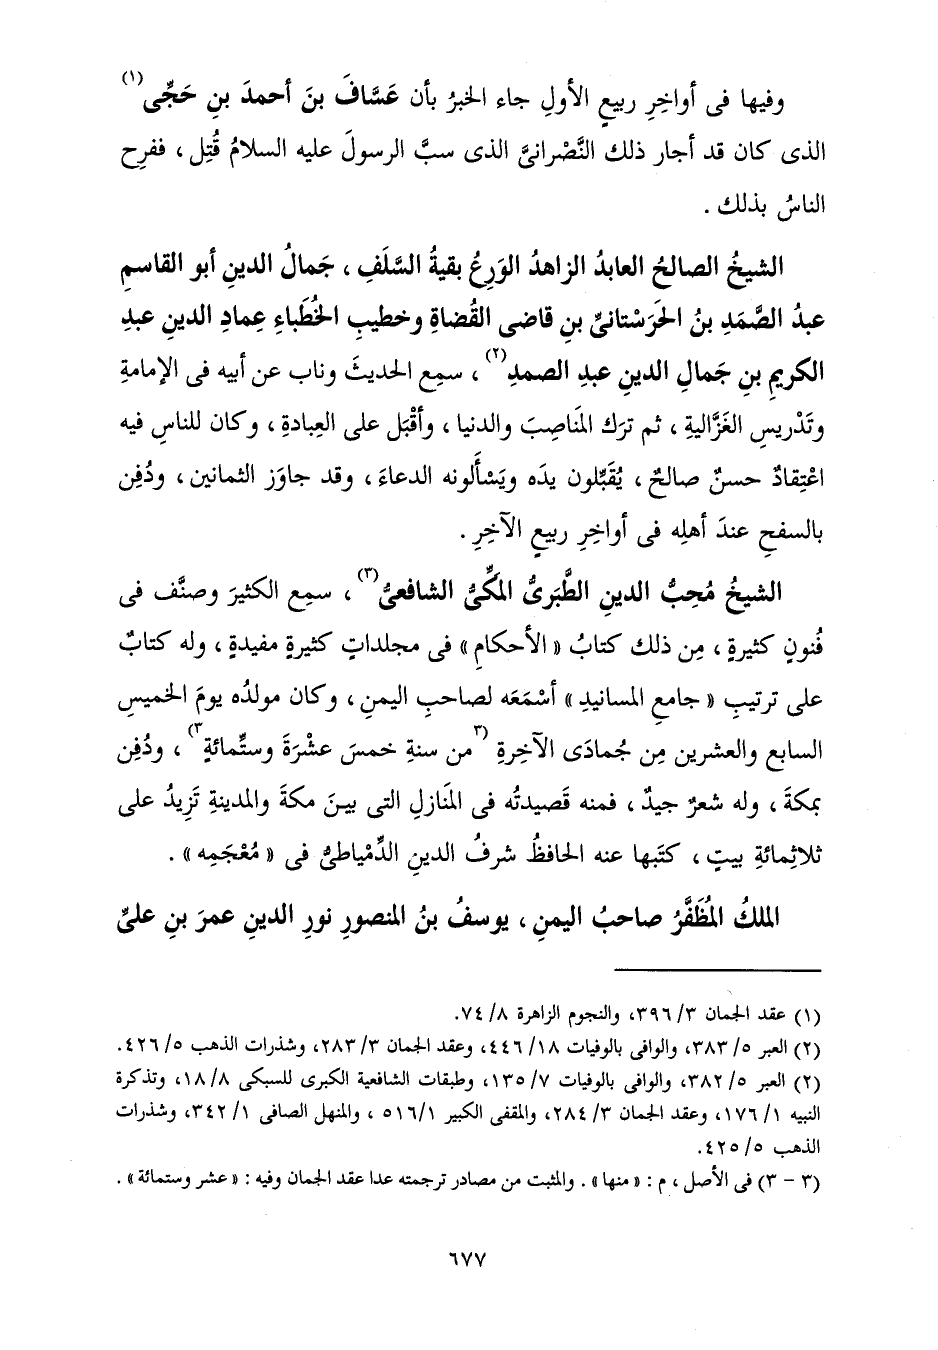 وفيها فى أواخِرِ ربيعٍ الأولِ جاء الخبرُ بأن عَسَّافَ بنَ أحمدَ بنِ حَجِّى(١)
الذى كان قد أجار ذلك النَّصْرانىَّ الذى سبَّ الرسولَ عليه السلامُ قُتِل ، ففرِح
الناسُ بذلك .
الشيخُ الصالحُ العابدُ الزاهدُ الوَرِعُ بقيةُ السَّلَفِ ، جَمالُ الدينِ أبو القاسمِ
عبدُ الصَّمَدِ بنُ الحَرَسْتانىِّ بنِ قاضى القُضاةِ وخطيبِ الخُطَباءِ عِمادِ الدينِ عبدِ
الكريمِ بنِ جَمالِ الدينِ عبدِ الصمدِ(٢) ، سمِع الحديثَ وناب عن أبيه فى الإمامةِ
وتَدْريسِ الغَزَّاليةِ ، ثم ترَك المَناصِبَ والدنيا ، وأقْبَل على العِبادةِ ، وكان للناسِ فيه
اعْتِقادٌ حسنٌ صالحٌ ، يُقَبِّلون يدَه ويَسْأَلونه الدعاءَ ، وقد جاوَز الثمانين ، ودُفِن
بالسفحِ عندَ أهلِه فى أواخِرِ ربيعٍ الآخِرِ .
الشيخُ مُحِبُّ الدينِ الطَّبَرىُّ المَكِّىُّ الشافعىُّ(٣) ، سمِع الكثيرَ وصنَّف فى
فُنونٍ كثيرةٍ ، مِن ذلك كتابُ « الأحكامِ » فى مجلداتٍ كثيرةٍ مفيدةٍ ، وله كتابٌ
على ترتيبِ « جامعِ المسانيدِ » أسْمَعَه لصاحبِ اليمنِ ، وكان مولدُه يومَ الخميسِ
السابع والعشرين مِن جُمادَى الآخِرةِ (٣من سنةِ خمسَ عشْرَةَ وستِّمائةٍ٣) ، ودُفِن
بمكةَ ، وله شعرٌ جيدٌ ، فمنه قَصيدتُه فى المَنازلِ التى بينَ مكةَ والمدينةِ تَزِيدُ على
ثلاثِمائةِ بيتٍ ، كتَبها عنه الحافظُ شرفُ الدينِ الدِّمْياطىُّ فى « مُعْجَمِه » .
الملكُ المُظَفَّرُ صاحبُ اليمنِ ، يوسفُ بنُ المنصورِ نورِ الدينِ عمرَ بنِ علىِّ
(١) عقد الجمان ٣/ ٣٩٦، والنجوم الزاهرة ٨/ ٧٤.
(٢) العبر ٥/ ٣٨٣، والوافى بالوفيات ١٨/ ٤٤٦، وعقد الجمان ٣/ ٢٨٣، وشذرات الذهب ٥/ ٤٢٦.
(٢) العبر ٥/ ٣٨٢، والوافى بالوفيات ٧/ ١٣٥، وطبقات الشافعية الكبرى للسبكى ٨/ ١٨، وتذكرة
النبيه ١/ ١٧٦، وعقد الجمان ٣/ ٢٨٤، والمقفى الكبير ١/ ٥١٦ ، والمنهل الصافى ١/ ٣٤٢، وشذرات
الذهب ٥/ ٤٢٥.
(٣ - ٣) فى الأصل ، م : « منها » . والمثبت من مصادر ترجمته عدا عقد الجمان وفيه : « عشر وستمائة » .
٦٧٧